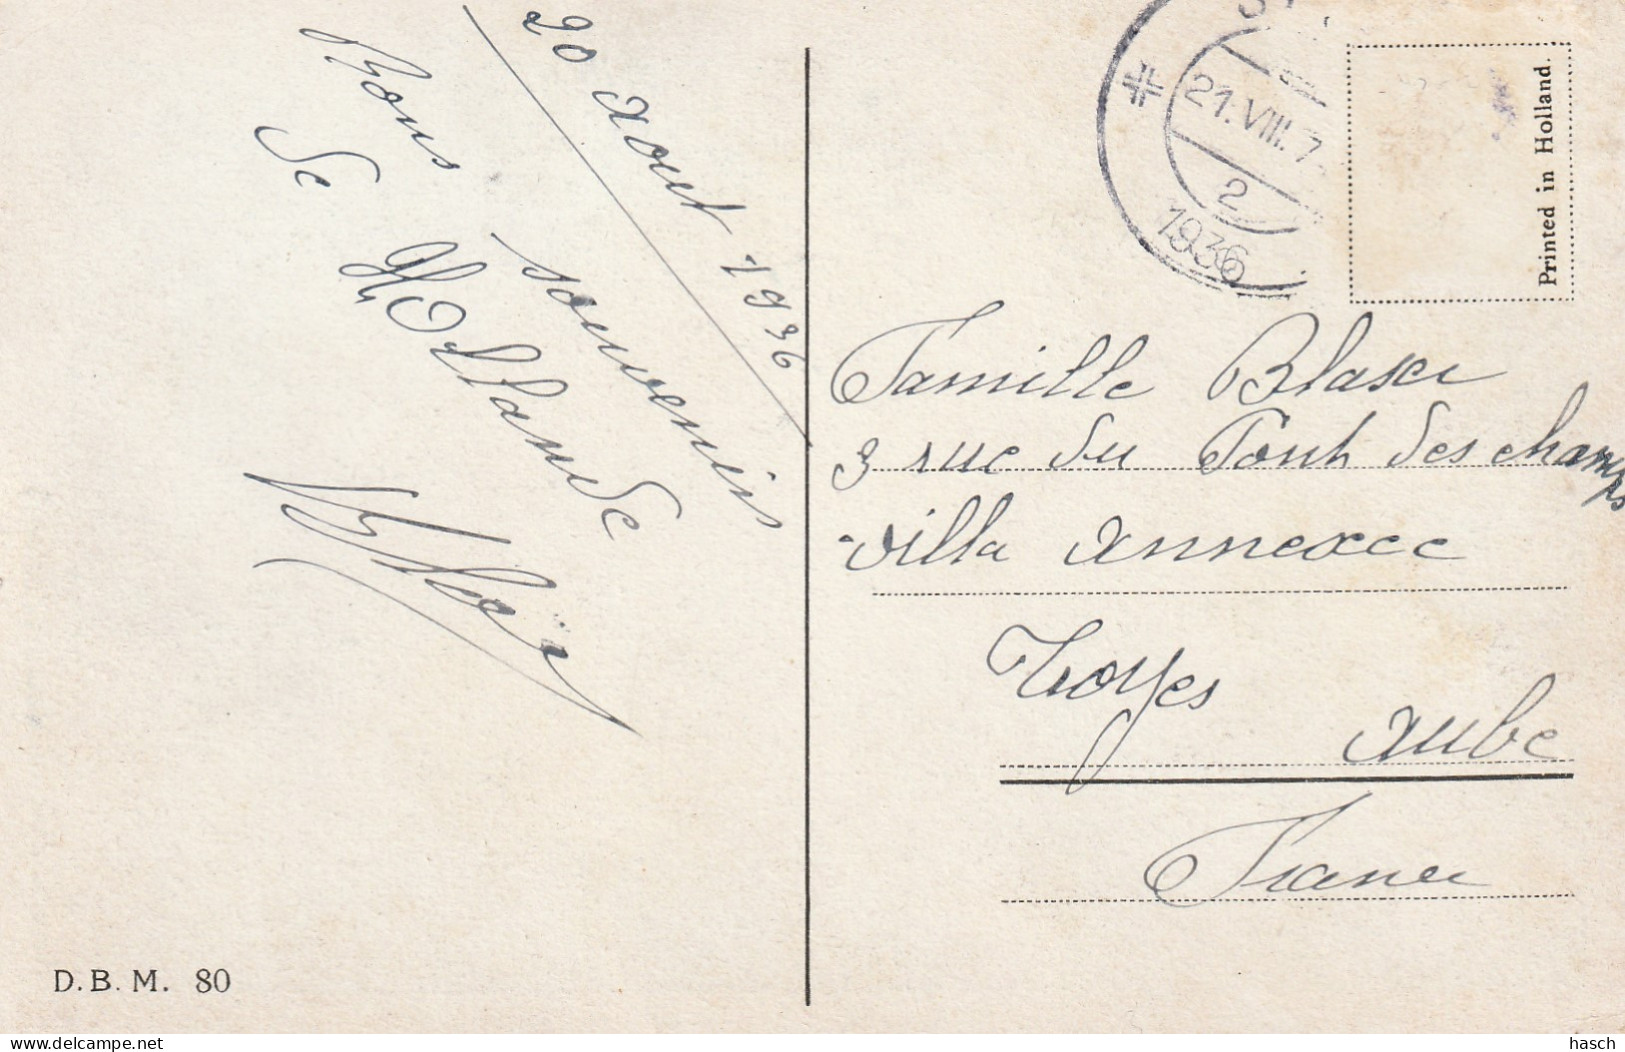 20 Aout 1936
Bons souvenirs
de Hollande
21.VIII.7
2
1936
Printed in Holland.
Famille
3 rue du Pont des champs
villa annexee
Troyes
Aube
France
D.B.M. 80
www.delcampe.net
hasch